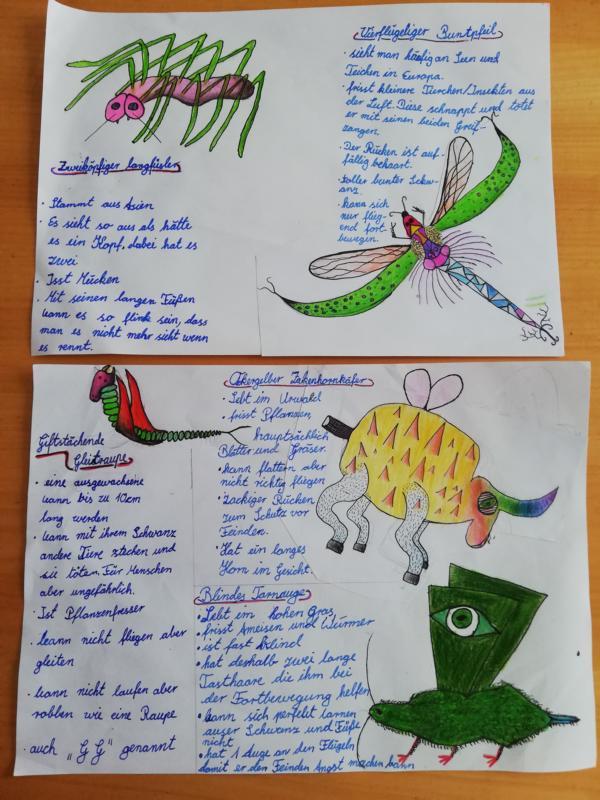 Vierflügeliger Buntpfeil
· sieht man häufig an Seen und
Teichen in Europa.
· frisst kleinere Tierchen/Insekten aus
der Luft. Diese schnappt und tötet
er mit seinen beiden Greif-
zangen.
· Der Rücken ist auf-
fällig behaart.
· toller bunter Schw-
anz.
· kann sich
nur flieg-
end fort
bewegen.
Zweiköpfiger Langfüsler
· Stammt aus Asien
· Es sieht so aus als hätte
es ein Kopf, dabei hat es
zwei
· Isst Mücken
· Mit seinen langen Füßen
kann es so flink sein, dass
man es nicht mehr sieht wenn
es rennt.
Giftstächende
Gleitraupe
· eine ausgewachsene
kann bis zu 10cm
lang werden
· kann mit ihrem Schwanz
andere Tiere stechen und
sie töten. Für Menschen
aber ungefährlich.
· Ist Pflanzenfresser
· kann nicht fliegen aber
gleiten
· kann nicht laufen aber
robben wie eine Raupe
· auch "GG" genannt
Ockergelber Zakenhornkäfer
· Lebt im Urwald
· frisst Pflanzen,
hauptsächlich
Blätter und Gräser.
· kann flattern aber
nicht richtig fliegen
· Zackiger Rücken
zum Schutz vor
Feinden.
· Hat ein langes
Horn im Gesicht.
Blindes Tarnauge
· Lebt im hohen Gras
· frisst Ameisen und Würmer
· ist fast blind
· hat deshalb zwei lange
Tasthaare die ihm bei
der Fortbewegung helfen
· kann sich perfekt tarnen
auser Schwanz und Füße
nicht
· hat 1 Auge an den Flügeln
damit er den Feinden Angst machen kann